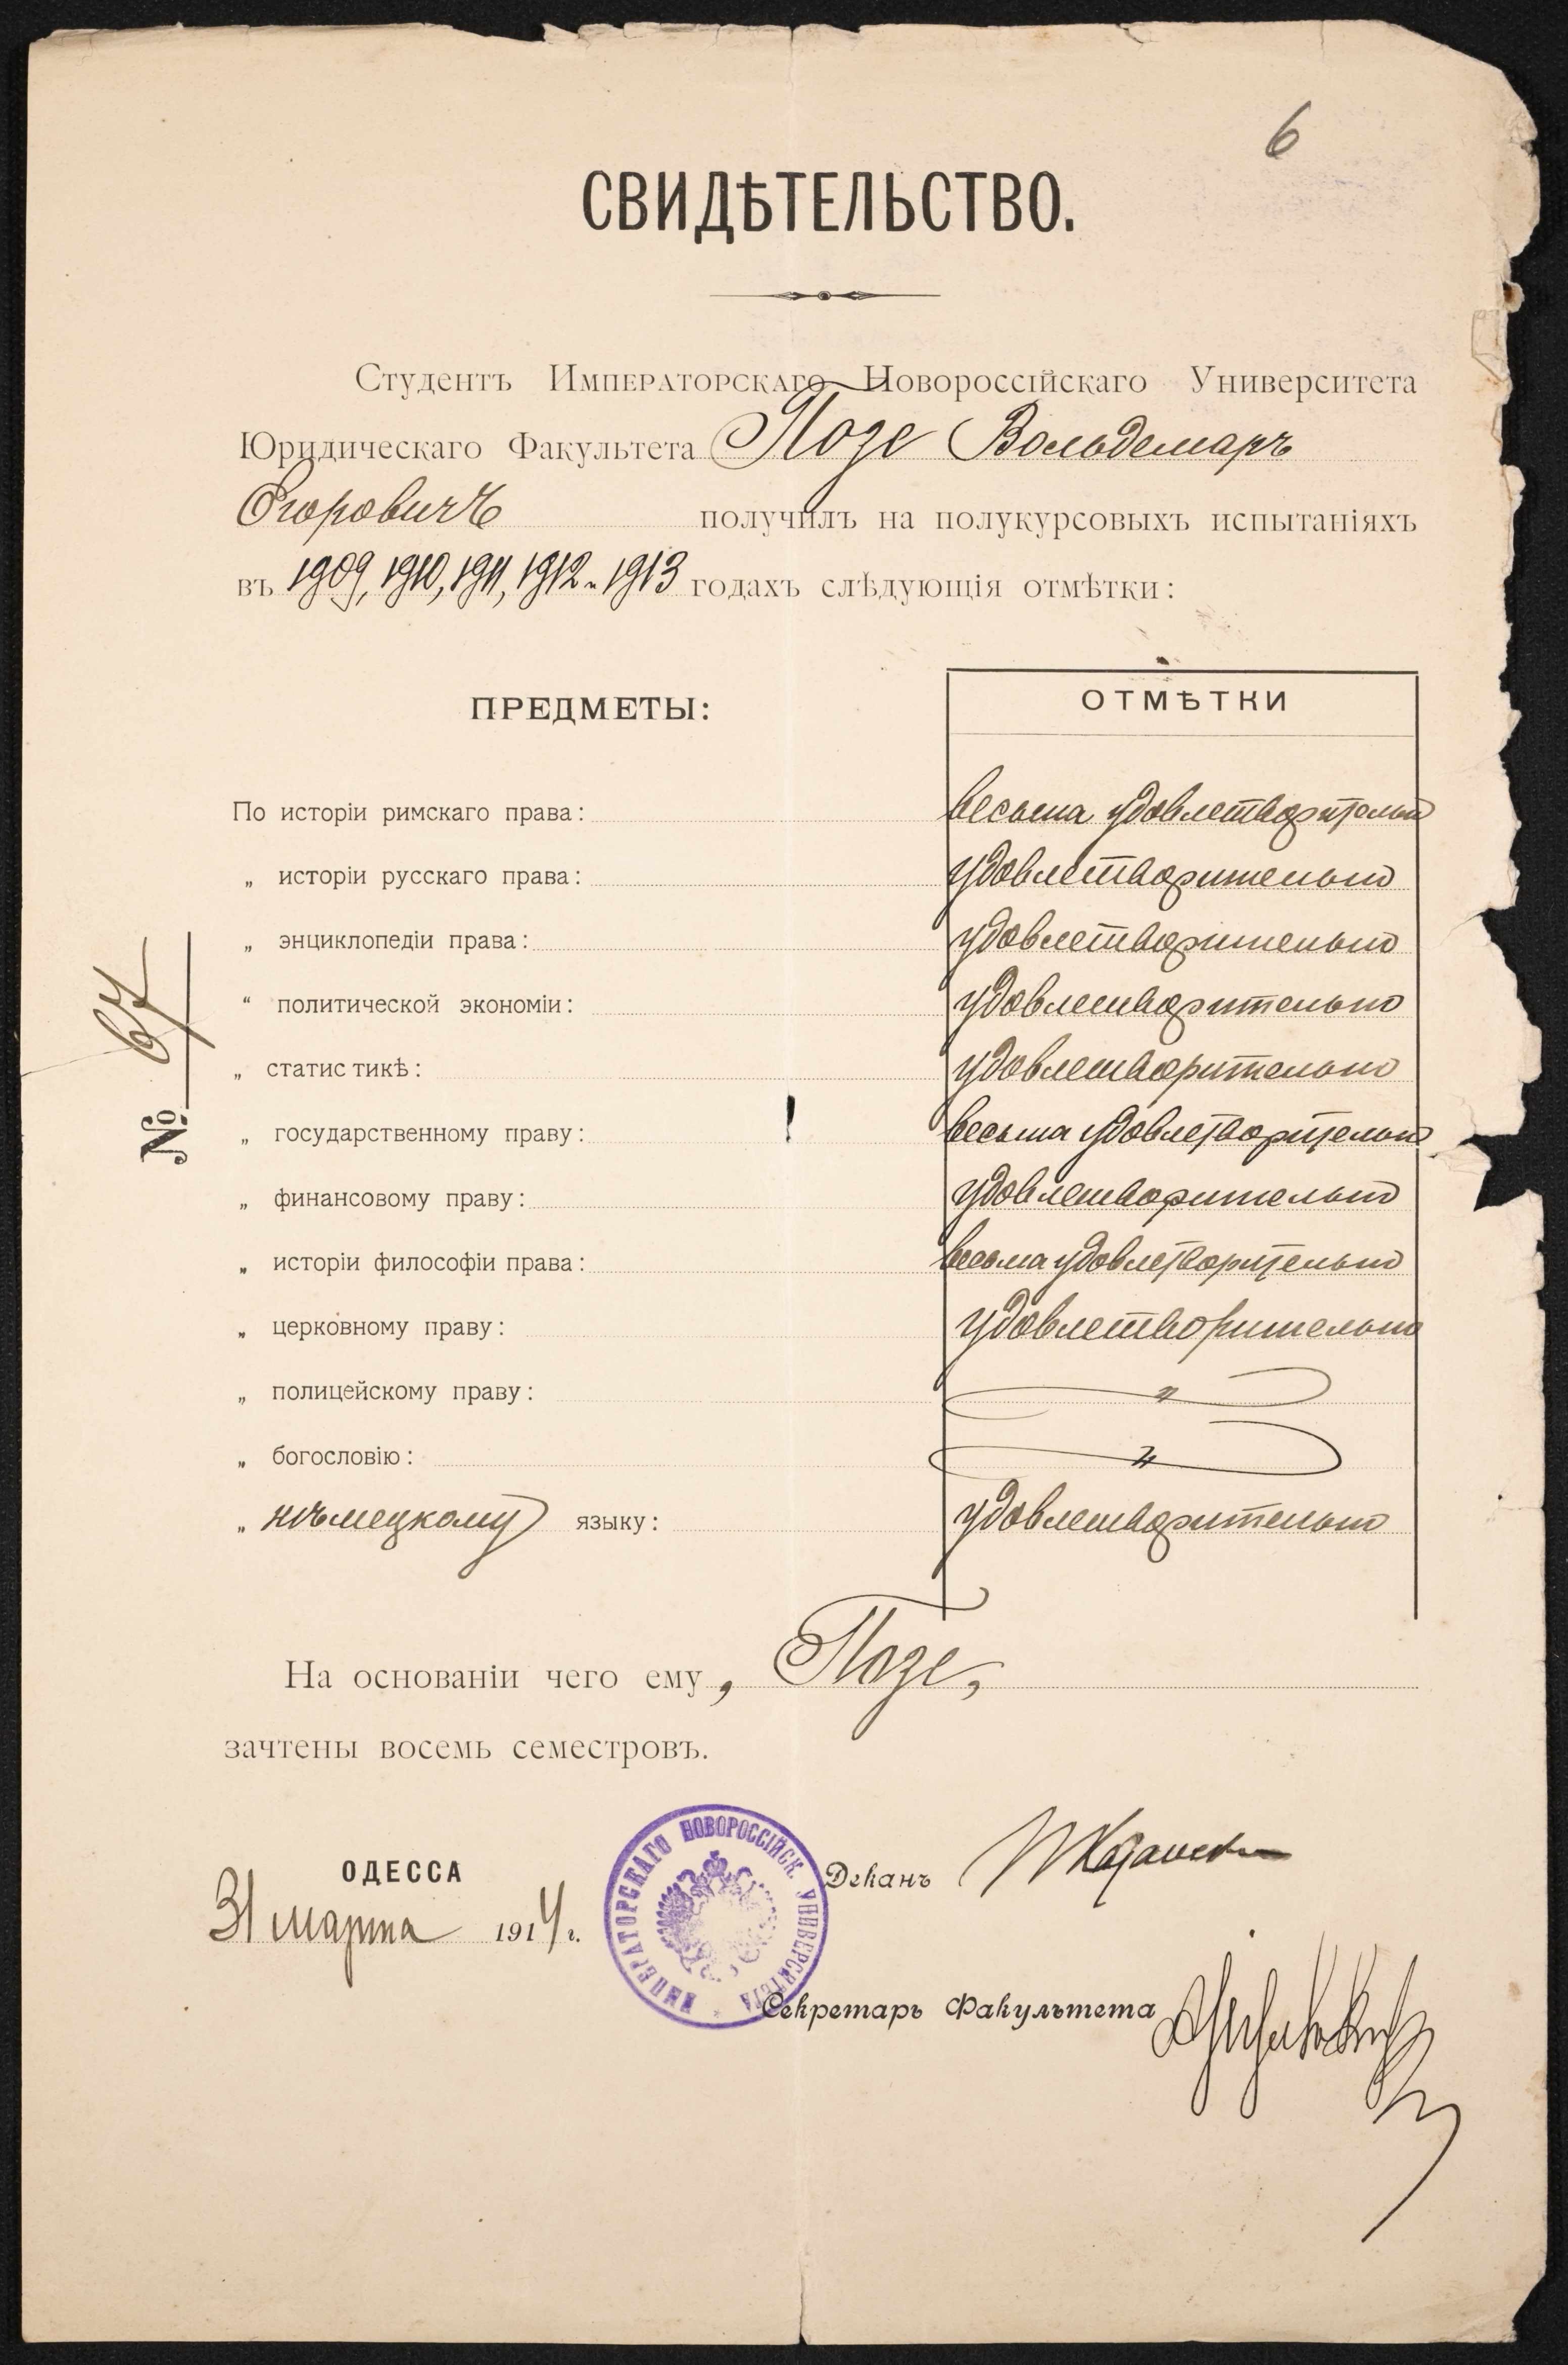 6
СВИДѢТЕЛЬСТВО.
Студентъ Императорскаго Новороссійскаго Университета
Юридическаго Факультета Позе Вольдемаръ
Егоровичъ получилъ на полукурсовыхъ испытаніяхъ
въ 1909, 1910, 1911, 1912 и 1913 годахъ слѣдующія отмѣтки:
ПРЕДМЕТЫ: ОТМѢТКИ
По исторіи римскаго права: весьма удовлетворительно
„ исторіи русскаго права: удовлетворительно
„ энциклопедіи права: удовлетворительно
“ политической экономіи: удовлетворительно
„ статистикѣ: удовлетворительно
„ государственному праву: весьма удовлетворительно
„ финансовому праву: удовлетворительно
„ исторіи философіи права: весьма удовлетворительно
„ церковному праву: удовлетворительно
„ полицейскому праву: „
„ богословію: „
„ нѣмецкому языку: удовлетворительно
№ 67
На основаніи чего ему, Позе,
зачтены восемь семестровъ.
ОДЕССА
31 марта 1914 г.
ИМПЕРАТОРСКАГО НОВОРОССІЙСК. УНИВЕРСИТЕТА
Деканъ П Казанскій
Секретарь Факультета